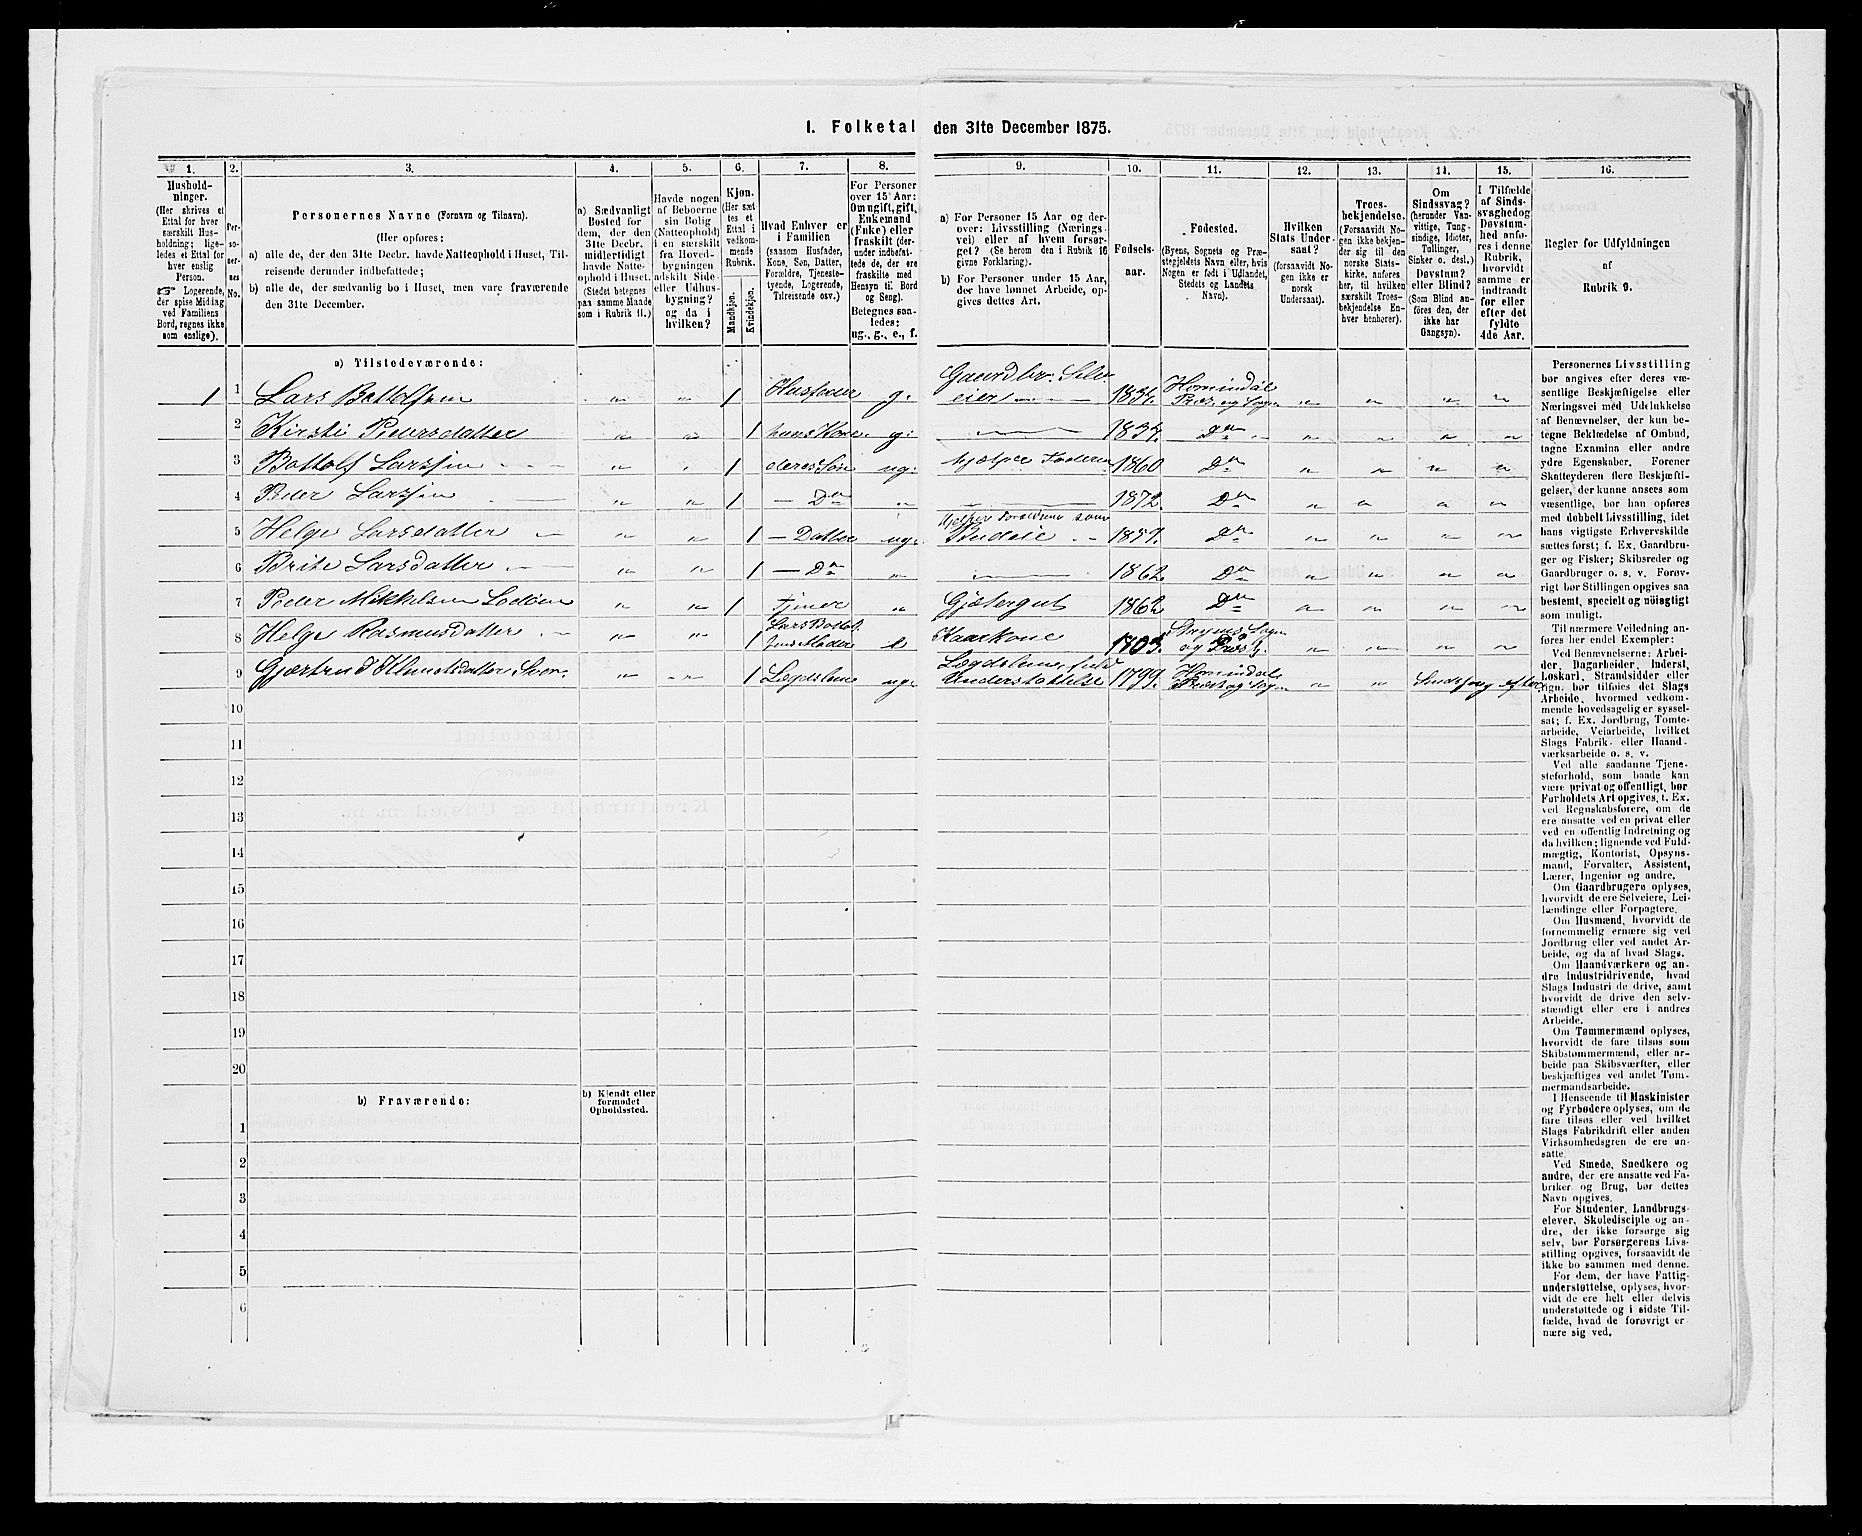 1. Folketal den 31te December 1875.
1. 2. 3. 4. 5. 6. 7. 8. 9. 10. 11. 12. 13. 14. 15. 16.
Hushold-
ninger.
(Her skrives et
Ettal for hver
særskilt Hus-
holdning; lige-
ledes et Ettal for
hver enslig
Person.
☞ Logerende,
der spise Middag
ved Familiens
Bord, regnes ikke
som enslige).
Per-
so-
ner-
nes
No.
Personernes Navne (Fornavn og Tilnavn).
(Her opføres:
a) alle de, der den 31te Decbr. havde Natteophold i Huset, Til-
reisende derunder indbefattede;
b) alle de, der sædvanlig bo i Huset, men vare fraværende
den 31te December.
a) Sædvanligt
Bosted for
dem, der den
31te Decbr.
midlertidigt
havde Natte-
ophold i Huset.
(Stedet betegnes
paa samme Maade
som i Rubrik 11.)
Havde nogen
af Beboerne
sin Bolig
(Natteophold)
i en særskilt
fra Hoved-
bygningen
adskilt Side-
eller Udhus-
bygning?
og da i
hvilken?
Kjøn.
(Her sæt-
tes et
Ettal i
vedkom-
mende
Rubrik.
Mandkjøn.
Kvindekjøn.
Hvad Enhver er
i Familien
(saasom Husfader,
Kone, Søn, Datter,
Forældre, Tjeneste-
tyende, Logerende,
Tilreisende osv.)
For Personer
over 15 Aar:
Om ugift, gift,
Enkemand
(Enke) eller
fraskilt (der-
under indbefat-
tede de, der ere
fraskilte med
Hensyn til Bord
og Seng).
Betegnes saa-
ledes:
ug., g., e., f.
a) For Personer 15 Aar og der-
over: Livsstilling (Nærings-
vei) eller af hvem forsør-
get? (Se herom den i Rubrik 16
givne Forklaring).
b) For Personer under 15 Aar,
der have lønnet Arbeide, op-
gives dettes Art.
Fødsels-
aar.
Fødested.
(Byens, Sognets og Præ-
stegjeldets Navn eller, hvis
Nogen er født i Udlandet,
Stedets og Landets
Navn).
Hvilken
Stats Under-
saat?
(forsaavidt No-
gen ikke er
norsk
Undersaat).
Troes-
bekjendelse.
(Forsaavidt No-
gen ikke bekjen-
der sig til den
norske Stats-
kirke, anføres
her, til hvilken
særskilt Troes-
bekjendelse En-
hver henhører).
Om
Sindssvag?
(herunder Van-
vittige, Tung-
sindige, Idioter,
Tullinger,
Sinker o. desl.)
Døvstum?
eller Blind?
(Som Blind an-
føres den, der
ikke har
Gangsyn).
I Tilfælde
af Sinds-
svaghed og
Døvstum-
hed anfø-
res i denne
Rubrik,
hvorvidt
samme er
indtraadt
før eller
efter det
fyldte
4de Aar.
Regler for Udfyldningen
af
Rubrik 9.
a) Tilstedeværende:
1 1 Lars Bottolfsen " " 1 Husfader g. Gaardbr. Selv-
eier Hornindal
Præst. og Sogn " " " "
2 Kirsti Pedersdatter " " 1 hans Kone g. Do " " " "
3 Bottolf Larssen " " 1 deres Søn ug. Hjælper Faderen 1860. Do " " " "
4 Peder Larssen " " 1 — Do " 1872. Do " " " "
5 Helge Larsdatter " " 1 — Datter ug. Hjelper Forældrene som
Budeie Do " " " "
6 Brite Larsdatter " " 1 — Do " 1862 Do " " " "
7 Peder Mikkelsen " " 1 Tjener " Gjætergut 1862 Do " " " "
8 Helge Rasmusdatter " " 1 e Kaarkone Stryns Sogn
og Præstg. " " " "
9 Gjertrud " " 1 Lægdslem ug. Lægdslem, fuld
Understøttelse 1799. Hornindal
Præst og Sogn " "
10
11
12
13
14
15
16
17
18
19
20
b) Fraværende:
b) Kjendt eller
formodet
Opholdssted.
1
2
3
4
5
6
Personernes Livsstilling
bør angives efter deres væ-
sentlige Beskjæftigelse eller
Næringsvei med Udelukkelse
af Benævnelser, der kun be-
tegne Beklædelse af Ombud,
tagne Examina eller andre
ydre Egenskaber. Forener
Skatteyderen flere Beskjæfti-
gelser, der kunne ansees som
væsentlige, bør han opføres
med dobbelt Livsstilling, idet
hans vigtigste Erhvervskilde
sættes først; f. Ex. Gaardbru-
ger og Fisker; Skibsreder og
Gaardbruger o. s. v. Forøv-
rigt bør Stillingen opgives saa
bestemt, specielt og nøiagtigt
som muligt.
Til nærmere Veiledning an-
føres her endel Exempler:
Ved Benævnelserne: Arbei-
der, Dagarbeider, Inderst,
Løskarl, Strandsidder eller
lign. bør tilføies det Slags
Arbeide, hvormed vedkom-
mende hovedsagelig er syssel-
sat; f. Ex. Jordbrug, Tomte-
arbeide, Veiarbeide, hvilket
Slags Fabrik- eller Haand-
værksarbeide o. s. v.
Ved alle saadanne Tjene-
steforhold, som baade kan
være privat og offentligt, bør
Forholdets Art opgives, t. Ex.
ved Regnskabsførere, om de
ere ansatte ved en privat eller
ved en offentlig Indretning og
da hvilken; lignende ved Fuld-
mægtig, Kontorist, Opsyns-
mand, Forvalter, Assistent,
Lærer, Ingeniør og andre.
Om Gaardbrugere oplyses,
hvorvidt de ere Selveiere, Lei-
lændinge eller Forpagtere.
Om Husmænd, hvorvidt de
fornemmelig ernære sig ved
Jordbrug eller ved andet Ar-
beide, og da af hvad Slags.
Om Haandværkere og an-
dre Industridrivende, hvad
Slags Industri de drive, samt
hvorvidt de drive den selv-
stændigt eller ere i andres
Arbeide.
Om Tømmermænd oplyses,
hvorvidt de fare tilsøs som
Skibstømmermænd, eller ar-
beide paa Skibsværfter, eller
beskjæftiges ved andet Tøm-
mermandsarbeide.
I Henseende til Maskinister
og Fyrbødere oplyses, om de
fare tilsøs eller ved hvilket
Slags Fabrikdrift eller anden
Virksomhedsgren de ere an-
satte.
Ved Smede, Snedkere og
andre, der ere ansatte ved Fa-
briker og Brug, bør dettes
Navn opgives.
For Studenter, Landbrugs-
elever, Skoledisciple og an-
dre, der ikke forsørge sig
selv, bør Forsørgerens Livs-
stilling opgives, forsaavidt de
ikke bo sammen med denne.
For dem, der have Fattig-
understøttelse, oplyses, hvor-
vidt de ere helt eller delvis
understøttede og i sidste Til-
fælde, hvad de forøvrigt er-
nære sig ved.